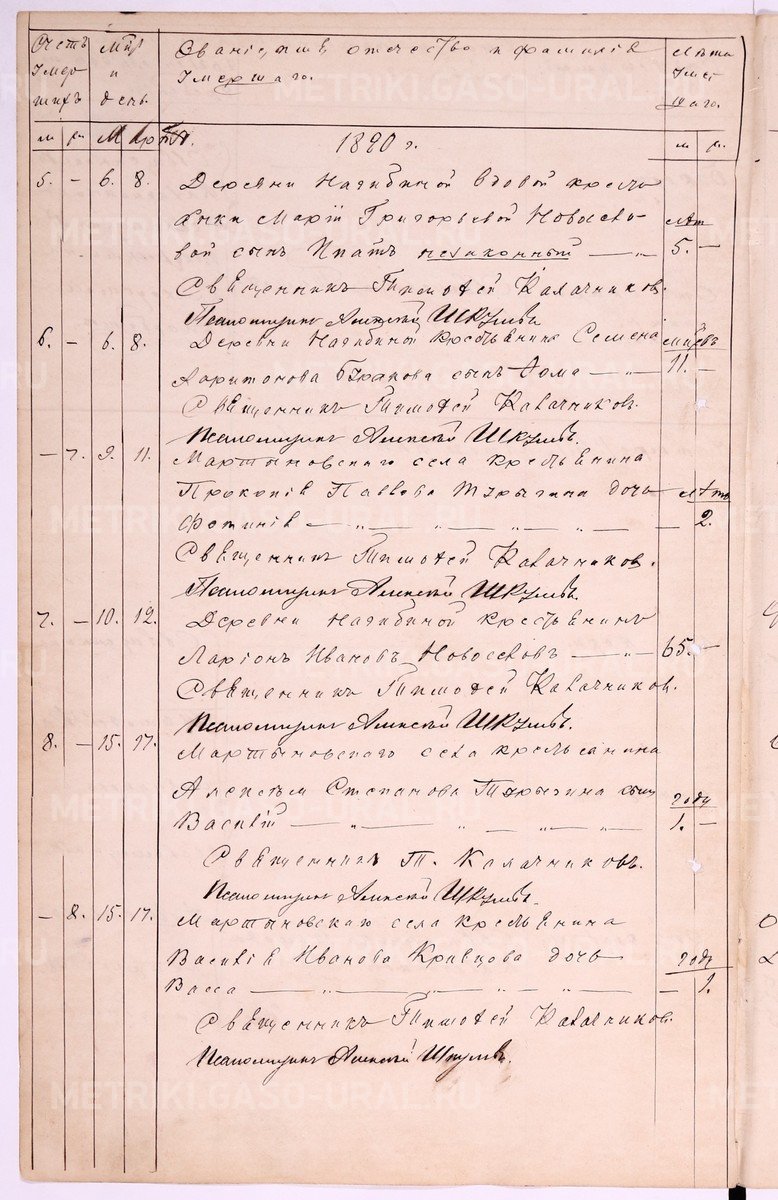 Счетъ Мѣс. Званіе, имя, отчество и фамилія Лѣта
Умер- и Умершаго. Умер-
шихъ день шаго.
м ж Марта. 1890 г. м ж
5. – 6. 8. Деревни Нагибиной вдовой кресть-
янки Маріи Григорьевой Новосело- Лѣт
вой сынъ Ипатъ незаконный — „ — 5. –
Священникъ Тимофей Калачниковъ.
Псаломщикъ Алексѣй Шкулевъ
6. – 6. 8. Деревни Нагибиной крестьянина Семена мѣсяцевъ
Харитонова сынъ Фома — „ 11. –
Священникъ Тимофей Калачниковъ.
Псаломщикъ Алексѣй Шкулевъ.
– 7. 9. 11. Мартыновскаго села крестьянина
Прокопія Павлова Турыгина дочь лѣтъ
Фотинія — „ — „ — „ — „ — – 2.
Священникъ Тимофей Калачниковъ.
Псаломщикъ Алексѣй Шкулевъ.
7. – 10. 12. Деревни Нагибиной крестьянинъ
Ларіонъ Ивановъ Новоселовъ — „ — 65. –
Священникъ Тимофей Калачниковъ.
Псаломщикъ Алексѣй Шкулевъ.
8. – 15. 17. Мартыновскаго села крестьянина
Алексѣя Степанова Турыгина сынъ году
Василій — „ — „ — „ — „ — 1. –
Священникъ Т. Калачниковъ.
Псаломщикъ Алексѣй Шкулевъ.
– 8. 15. 17. Мартыновскаго села крестьянина
Василія Иванова Кравцова дочь году
Васса — „ — „ — „ — „ — – 1.
Священникъ Тимофей Калачниковъ.
Псаломщикъ Алексѣй Шкулевъ.
METRIKI.GASO-URAL.RU